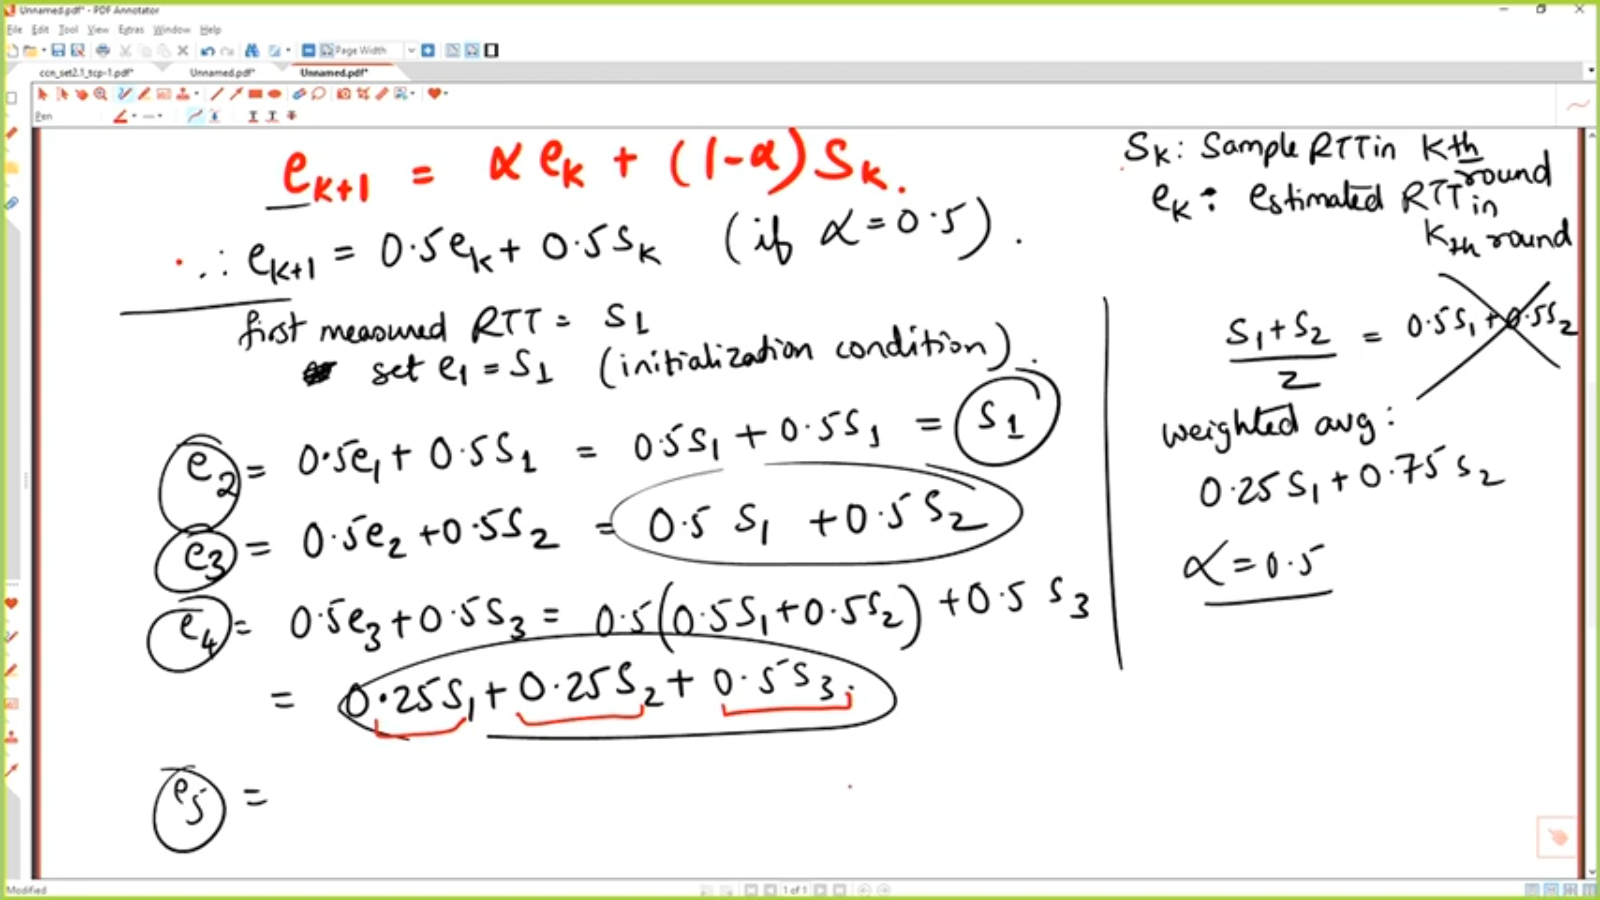 Unnamed.pdf* - PDF Annotator
File Edit Tool View Extras Window Help
Page Width
ccn_set2.1_tcp-1.pdf* Unnamed.pdf* Unnamed.pdf*
Pen
e_{k+1} = α e_k + (1-α) S_k.
∴ e_{k+1} = 0.5e_k + 0.5S_k (if α = 0.5).
first measured RTT = S1
set e1 = S1 (initialization condition).
e2 = 0.5e1 + 0.5S1 = 0.5S1 + 0.5S1 = S1
e3 = 0.5e2 + 0.5S2 = 0.5 S1 + 0.5 S2
e4 = 0.5e3 + 0.5S3 = 0.5(0.5S1 + 0.5S2) + 0.5 S3
= 0.25S1 + 0.25S2 + 0.5S3.
e5 =
S_K : Sample RTT in Kth round
e_K : estimated RTT in
Kth round
S1 + S2 / 2 = 0.5S1 + 0.5S2
weighted avg :
0.25 S1 + 0.75 S2
α = 0.5
Modified
1 of 1